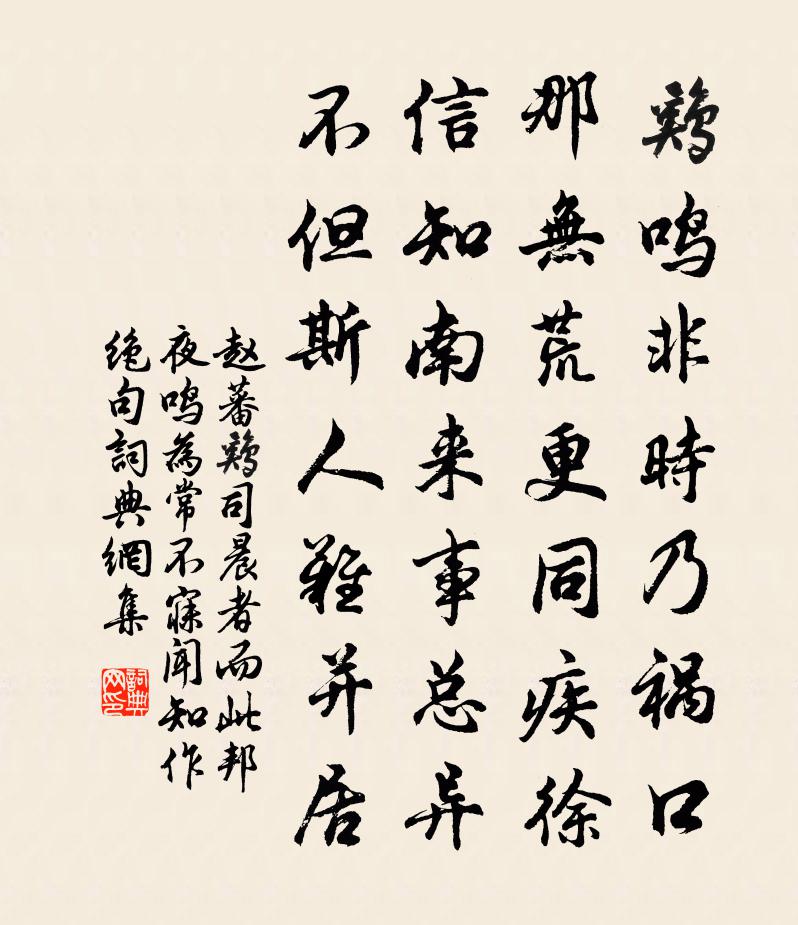 鷄鳴非時乃祸口
那無荒更同疾徐
信知南来事总异
不但斯人難并居
赵蕃鷄司晨者而此邦
夜鳴為常不寐闻知作
绝句詞典網集
詞典网印